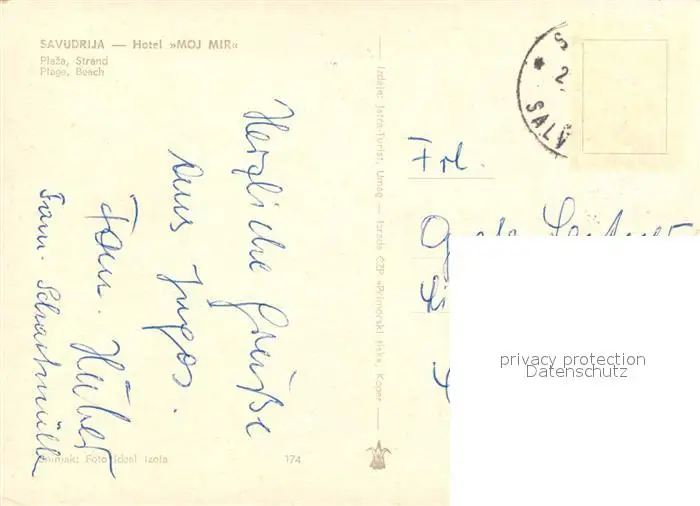 SAVUDRIJA — Hotel »MOJ MIR«
Plaža, Strand
Plage, Beach
Herzliche Grüße
aus Jugos.
Fam. Huber
Fam.
Snimak: Foto Ideal Izola
174
Izdaje: Istra-Turist, Umag — Izrada ČZP »Primorski tisk«, Koper
2.
SALV
Frl.
privacy protection
Datenschutz